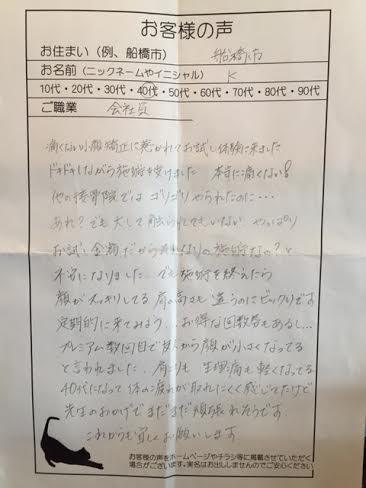 お客様の声
お住まい(例、船橋市) 船橋市
お名前(ニックネームやイニシャル) K
10代・20代・30代・40代・50代・60代・70代・80代・90代
ご職業 会社員
痛くない小顔矯正に惹かれてお試し体験に来ました
ドキドキしながら施術を受けました 本当に痛くない!
他の接骨院では ゴリゴリやられたのに…
あれ?でも大して触られてもいない やっぱり
お試し金額だからそれなりの施術なの?と
不安になりました でも施術を終えたら
顔がスッキリしてる 肩の高さも違うのにビックリです
定期的に来てみよう… お得な回数券もあるし…
プレミアム数回目で 顔が小さくなってる
と言われました 肩こりも 生理痛も軽くなってる
40代になって体の疲れが取れにくく感じてたけど
先生のおかげでまだまだ頑張れそうです
これからも宜しくお願いします
お客様の声をホームページやチラシ等に掲載させていただく
場合がございます。実名はお出ししませんのでご安心ください